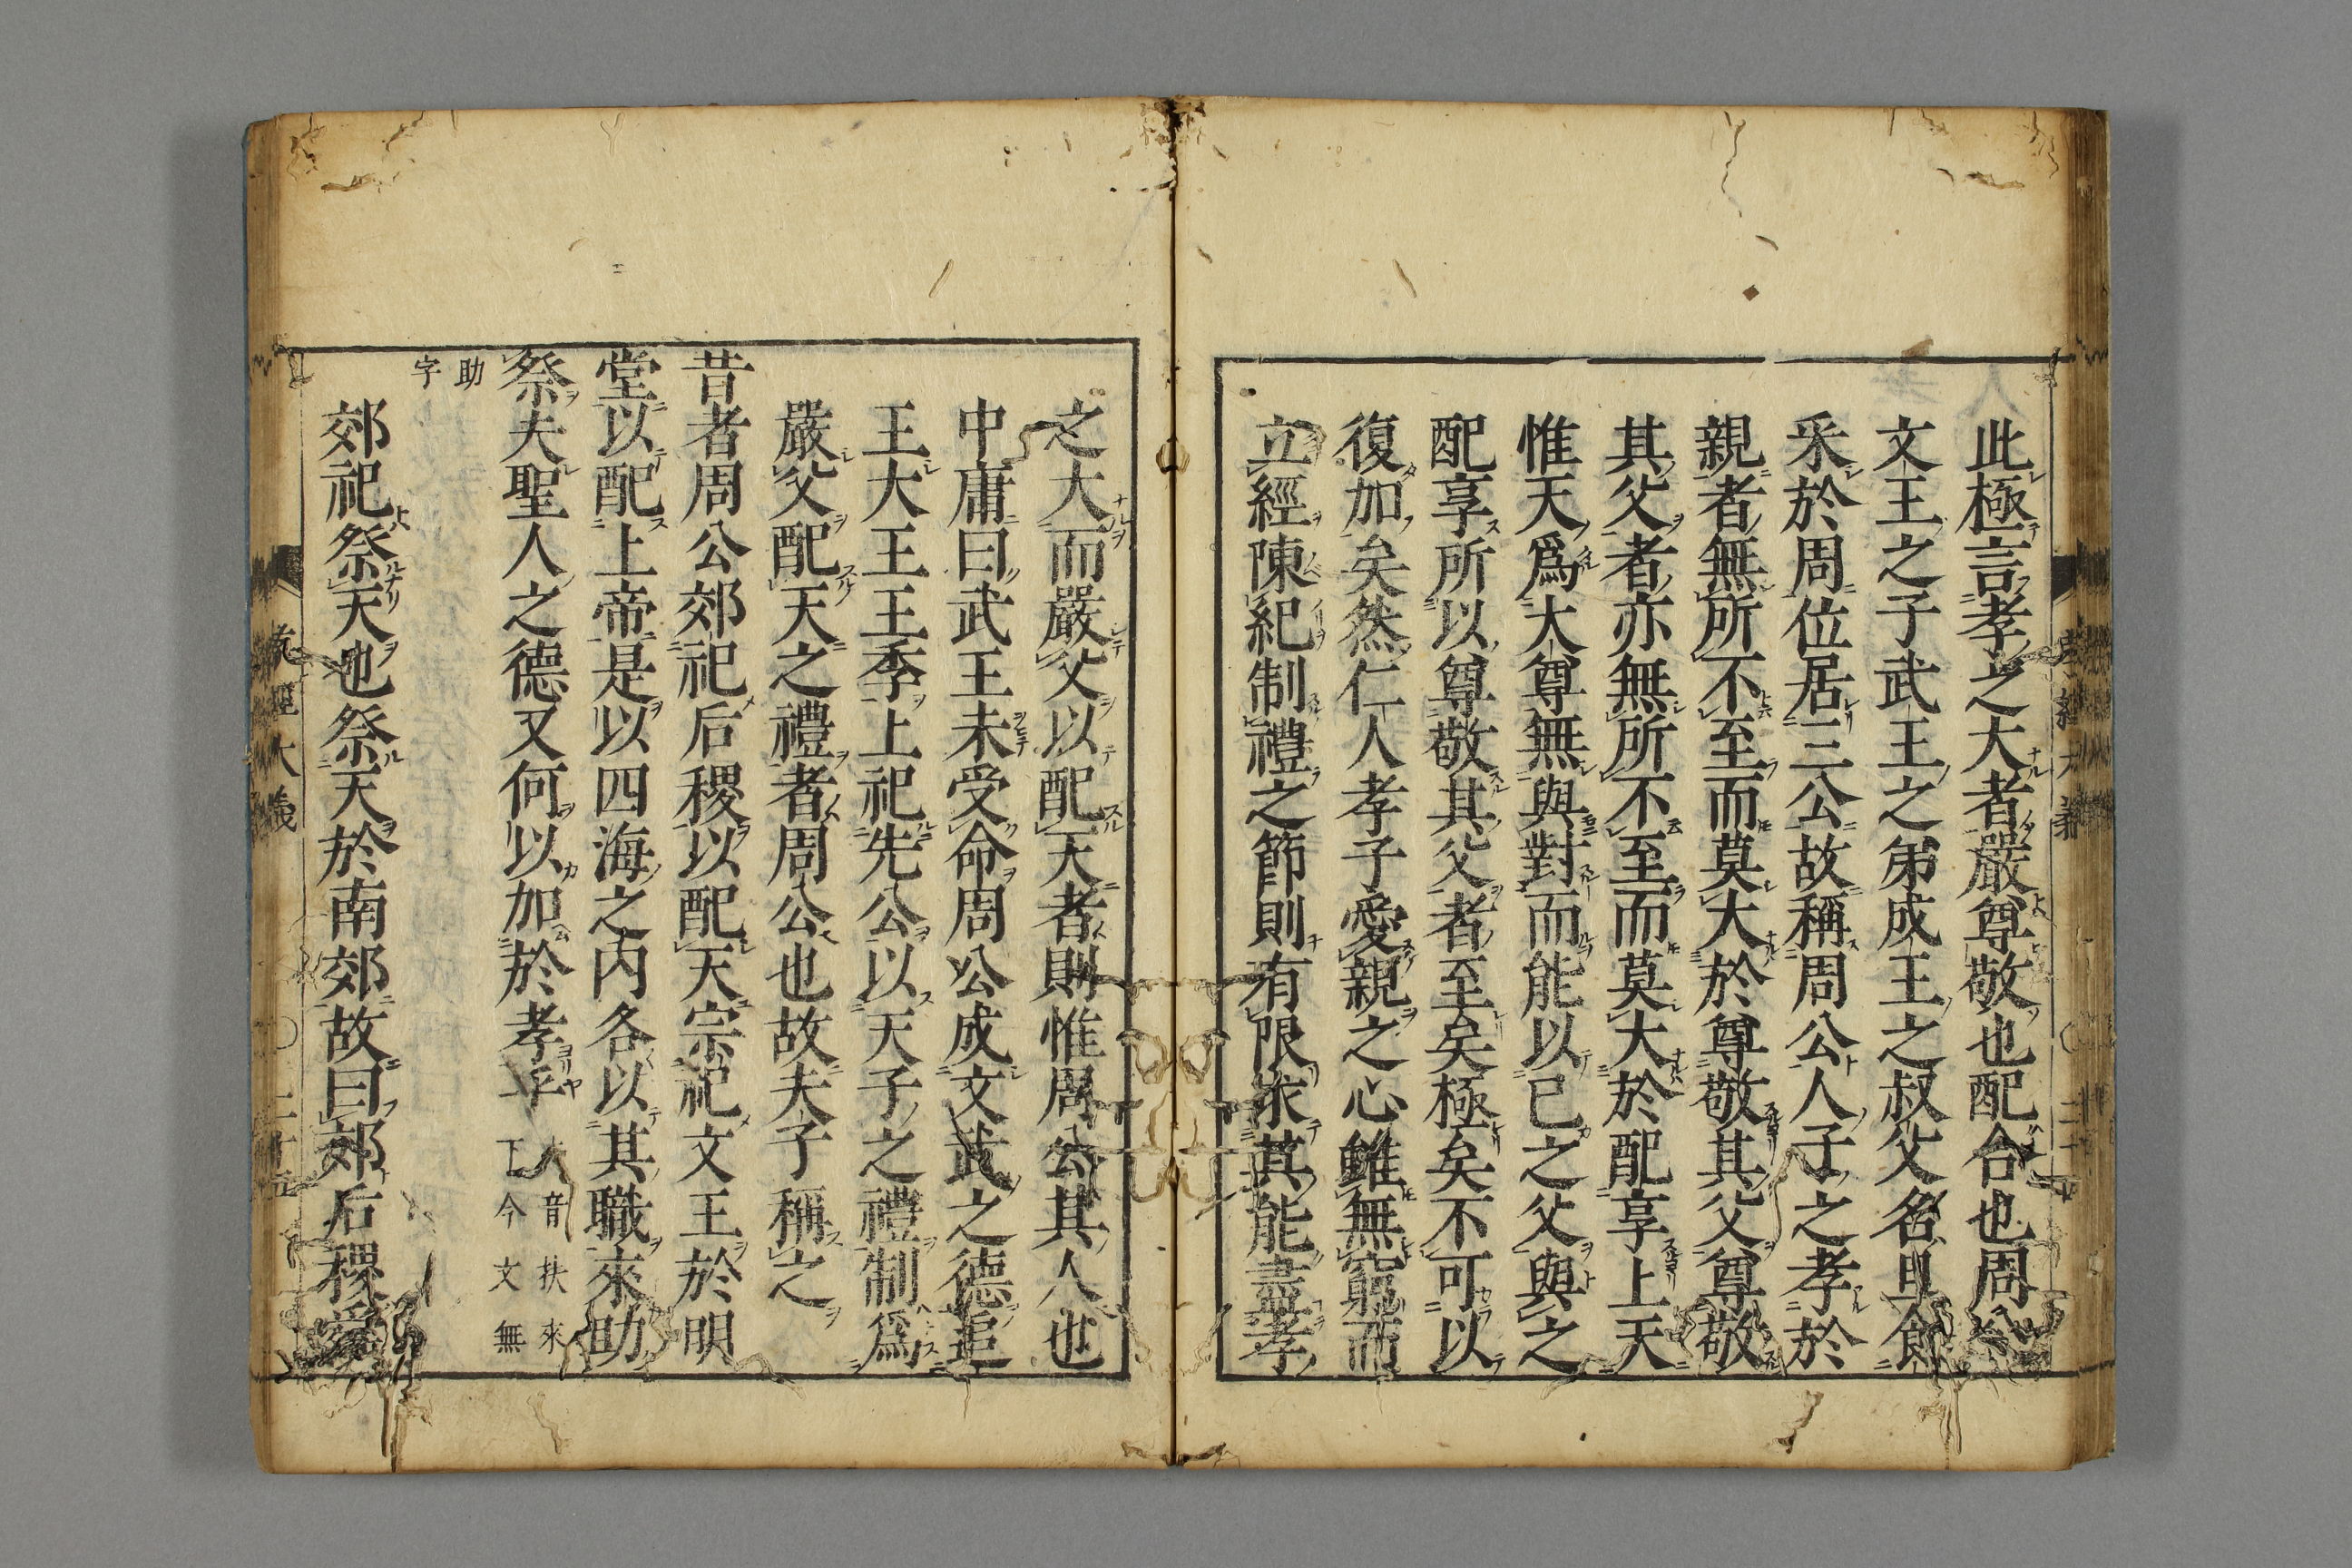 此極言孝之大者嚴尊敬也配合也周公
文王之子武王之弟成王之叔父名旦食
釆於周位居三公故稱周公人子之孝於
親者無所不至而莫大於尊敬其父尊敬
其父者亦無所不至而莫大於配享上天
惟天爲大尊無與對而能以已之父與之
配享所以尊敬其父者至矣極矣不可以
復加矣然仁人孝子愛親之心雖無窮而
立經陳紀制禮之節則有限求其能盡孝
之大而嚴父以配天者則惟周公其人也
中庸曰武王未受命周公成文武之德追
王大王王季上祀先公以天子之禮制爲
嚴父配天之禮者周公也故夫子稱之
昔者周公郊祀后稷以配天宗祀文王於明
堂以配上帝是以四海之內各以其職來助
祭夫聖人之德又何以加於孝乎夫音扶來
下今文無
助
字
郊祀祭天也祭天於南郊故曰郊后稷
孝經大義
二十五